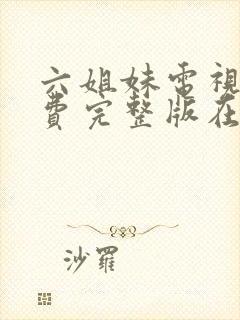 六姐妹電視
費完整版在
沙羅